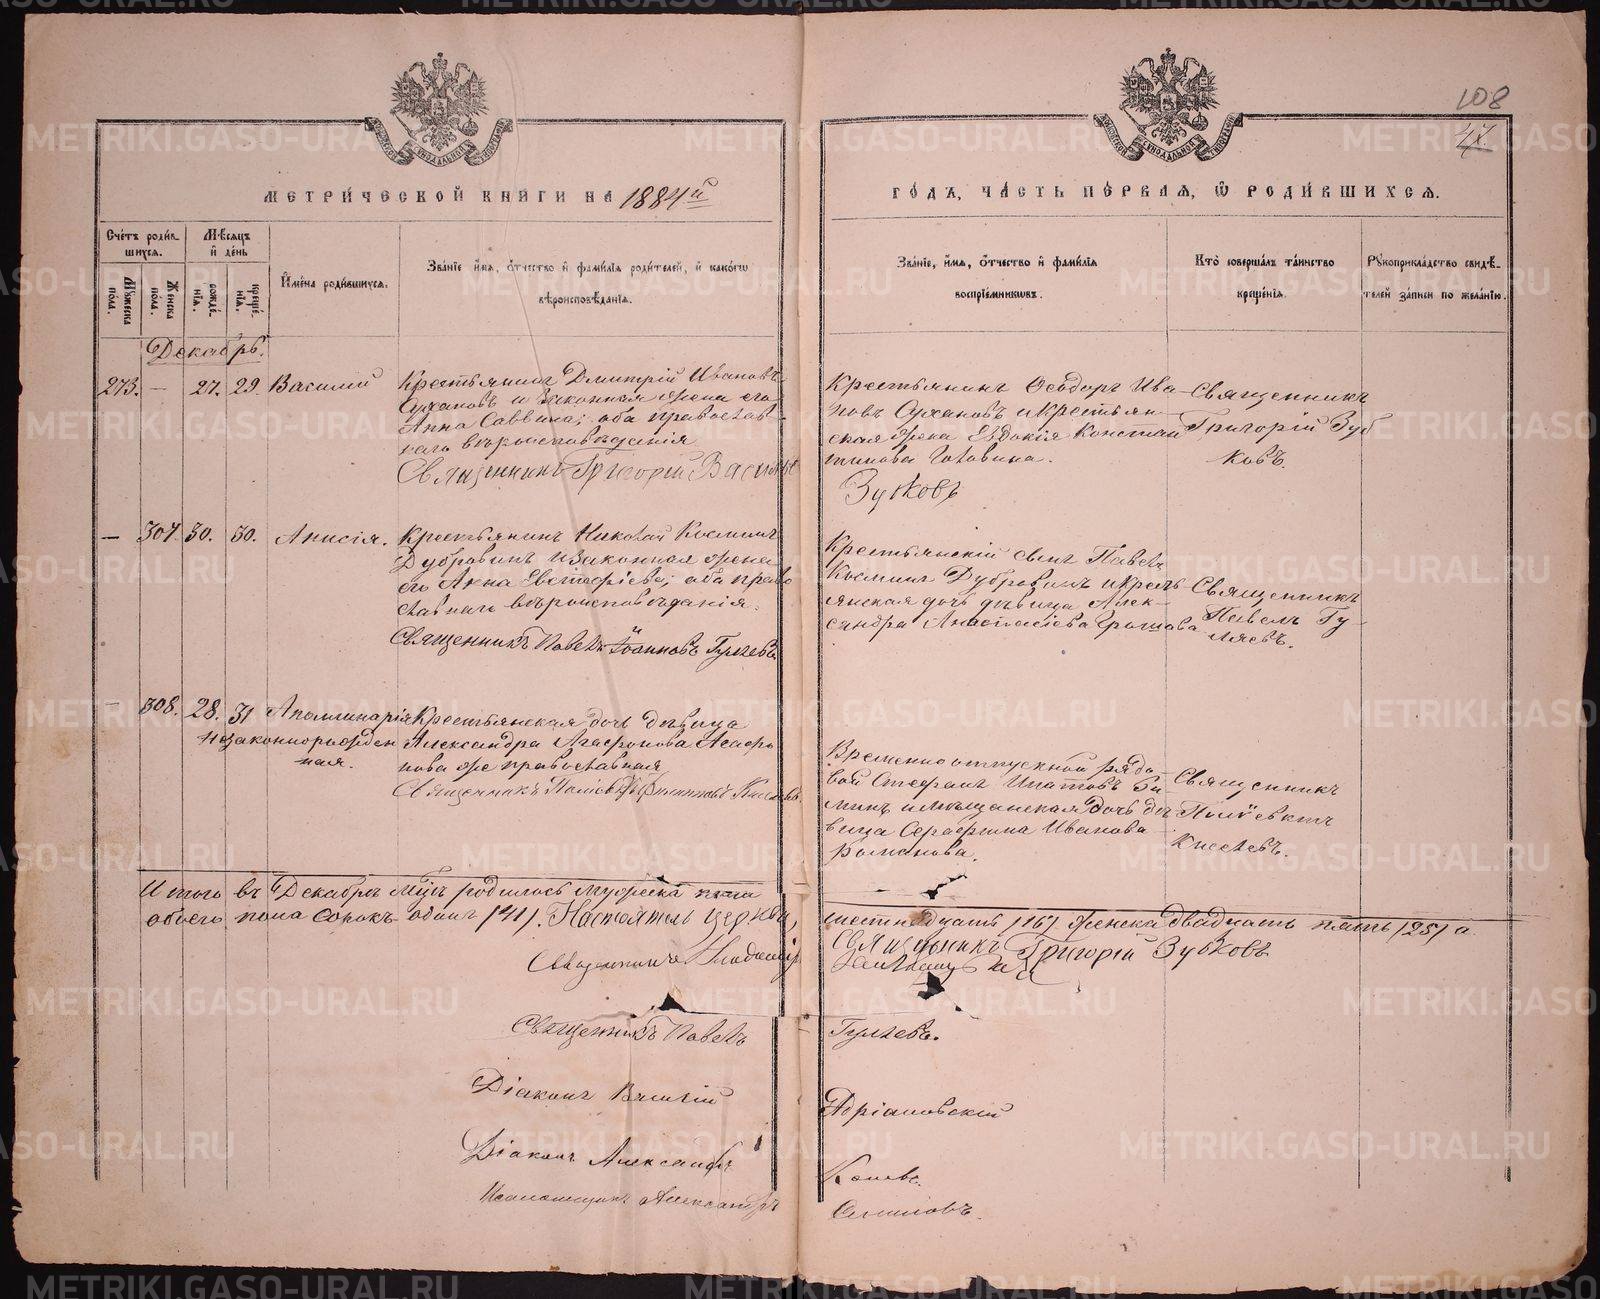 108
47
МЕТРИЧЕСКОЙ КНИГИ НА 1884й
ГОДЪ, ЧАСТЬ ПЕРВАЯ, Ѿ РОДИВШИХСЯ.
Счетъ родив-
шихся.
Мужеска
пола.
Женска
пола.
Мѣсяцъ
и день
рожде-
нія.
креще-
нія.
Имена родившихся.
Званіе имя, отчество и фамилія родителей, и какогѡ
вѣроисповѣданія.
Званіе, имя, отчество и фамилія
воспріемникѡвъ.
Кто совершалъ таинство
крещенія.
Рукоприкладство свидѣ-
телей записи по желанію.
Декабрь.
273. — 27. 29. Василій
Крестьянинъ Дмитрій Ивановъ
Сухановъ и законная жена его
Анна Саввина; оба православ-
наго вѣроисповѣданія
Священникъ Григорій Васильев
Крестьянинъ Ѳеодоръ Ива-
новъ Сухановъ и крестьян-
ская жена Евдокія Констан
тинова Головина.
Зубковъ
Священникъ
Григорій Зуб
ковъ.
— 307. 30. 30. Анисія.
Крестьянинъ Николай Космин
Дубровинъ и законная жена
его Анна Евстафіева; оба право
славнаго вѣроисповѣданія.
Священникъ Павелъ Іоанновъ Гуляевъ
Крестьянскій сынъ Павелъ
Косминъ Дубровинъ и кресть
янская дочь дѣвица Алек-
сандра Анастасіева Грошова
Священникъ
Павелъ Гу-
ляевъ.
— 308. 28. 31 Аполлинарія
незаконнорожден
ная.
Крестьянская дочь дѣвица
Александра Агафонова Агафо
нова же православная
Священникъ Полиевктъ Филипповъ Киселевъ
Временноотпускной рядо-
вой Стефанъ Ипатовъ
минъ и мѣщанская дочь дѣ
вица Серафима Иванова
Романова.
Священникъ
Поліевктъ
Киселевъ.
Итого въ Декабрѣ мцѣ родилось мужеска пола
шестнадцать /16/ женска двадцать пять /25/ а
обоего пола сорокъ одинъ /41/. Настоятель церкви,
Священникъ Григорій Зубковъ
Священникъ Владиміръ
Священникъ Павелъ
Гуляевъ.
Діаконъ Василій
Адріановскій
Діаконъ Александръ
Коневъ.
Псаломщикъ Александръ
METRIKI.GASO-URAL.RU